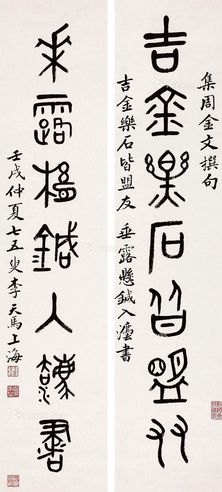 集周金文撰句
吉金樂石皆盟友
吉金樂石皆盟友 垂露懸鍼入灋書
垂露懸鍼入灋書
壬戌仲夏七五叟李天馬上海